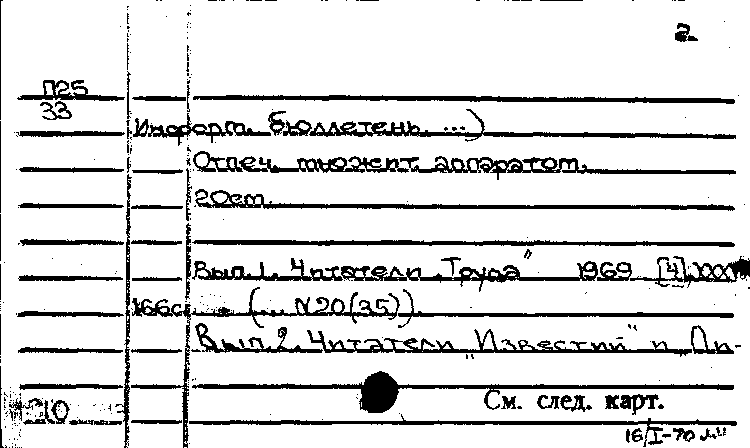 2.
П25
33
Информ. бюллетень. ...)
Отпеч. множит. аппаратом.
20см.
Вып. 1. Читатели „Труда" 1969 [4], XXX
166с. (... N20(35)).
Вып. 2. Читатели „Известий" и „Ли-
См. след. карт.
210
16/I-70